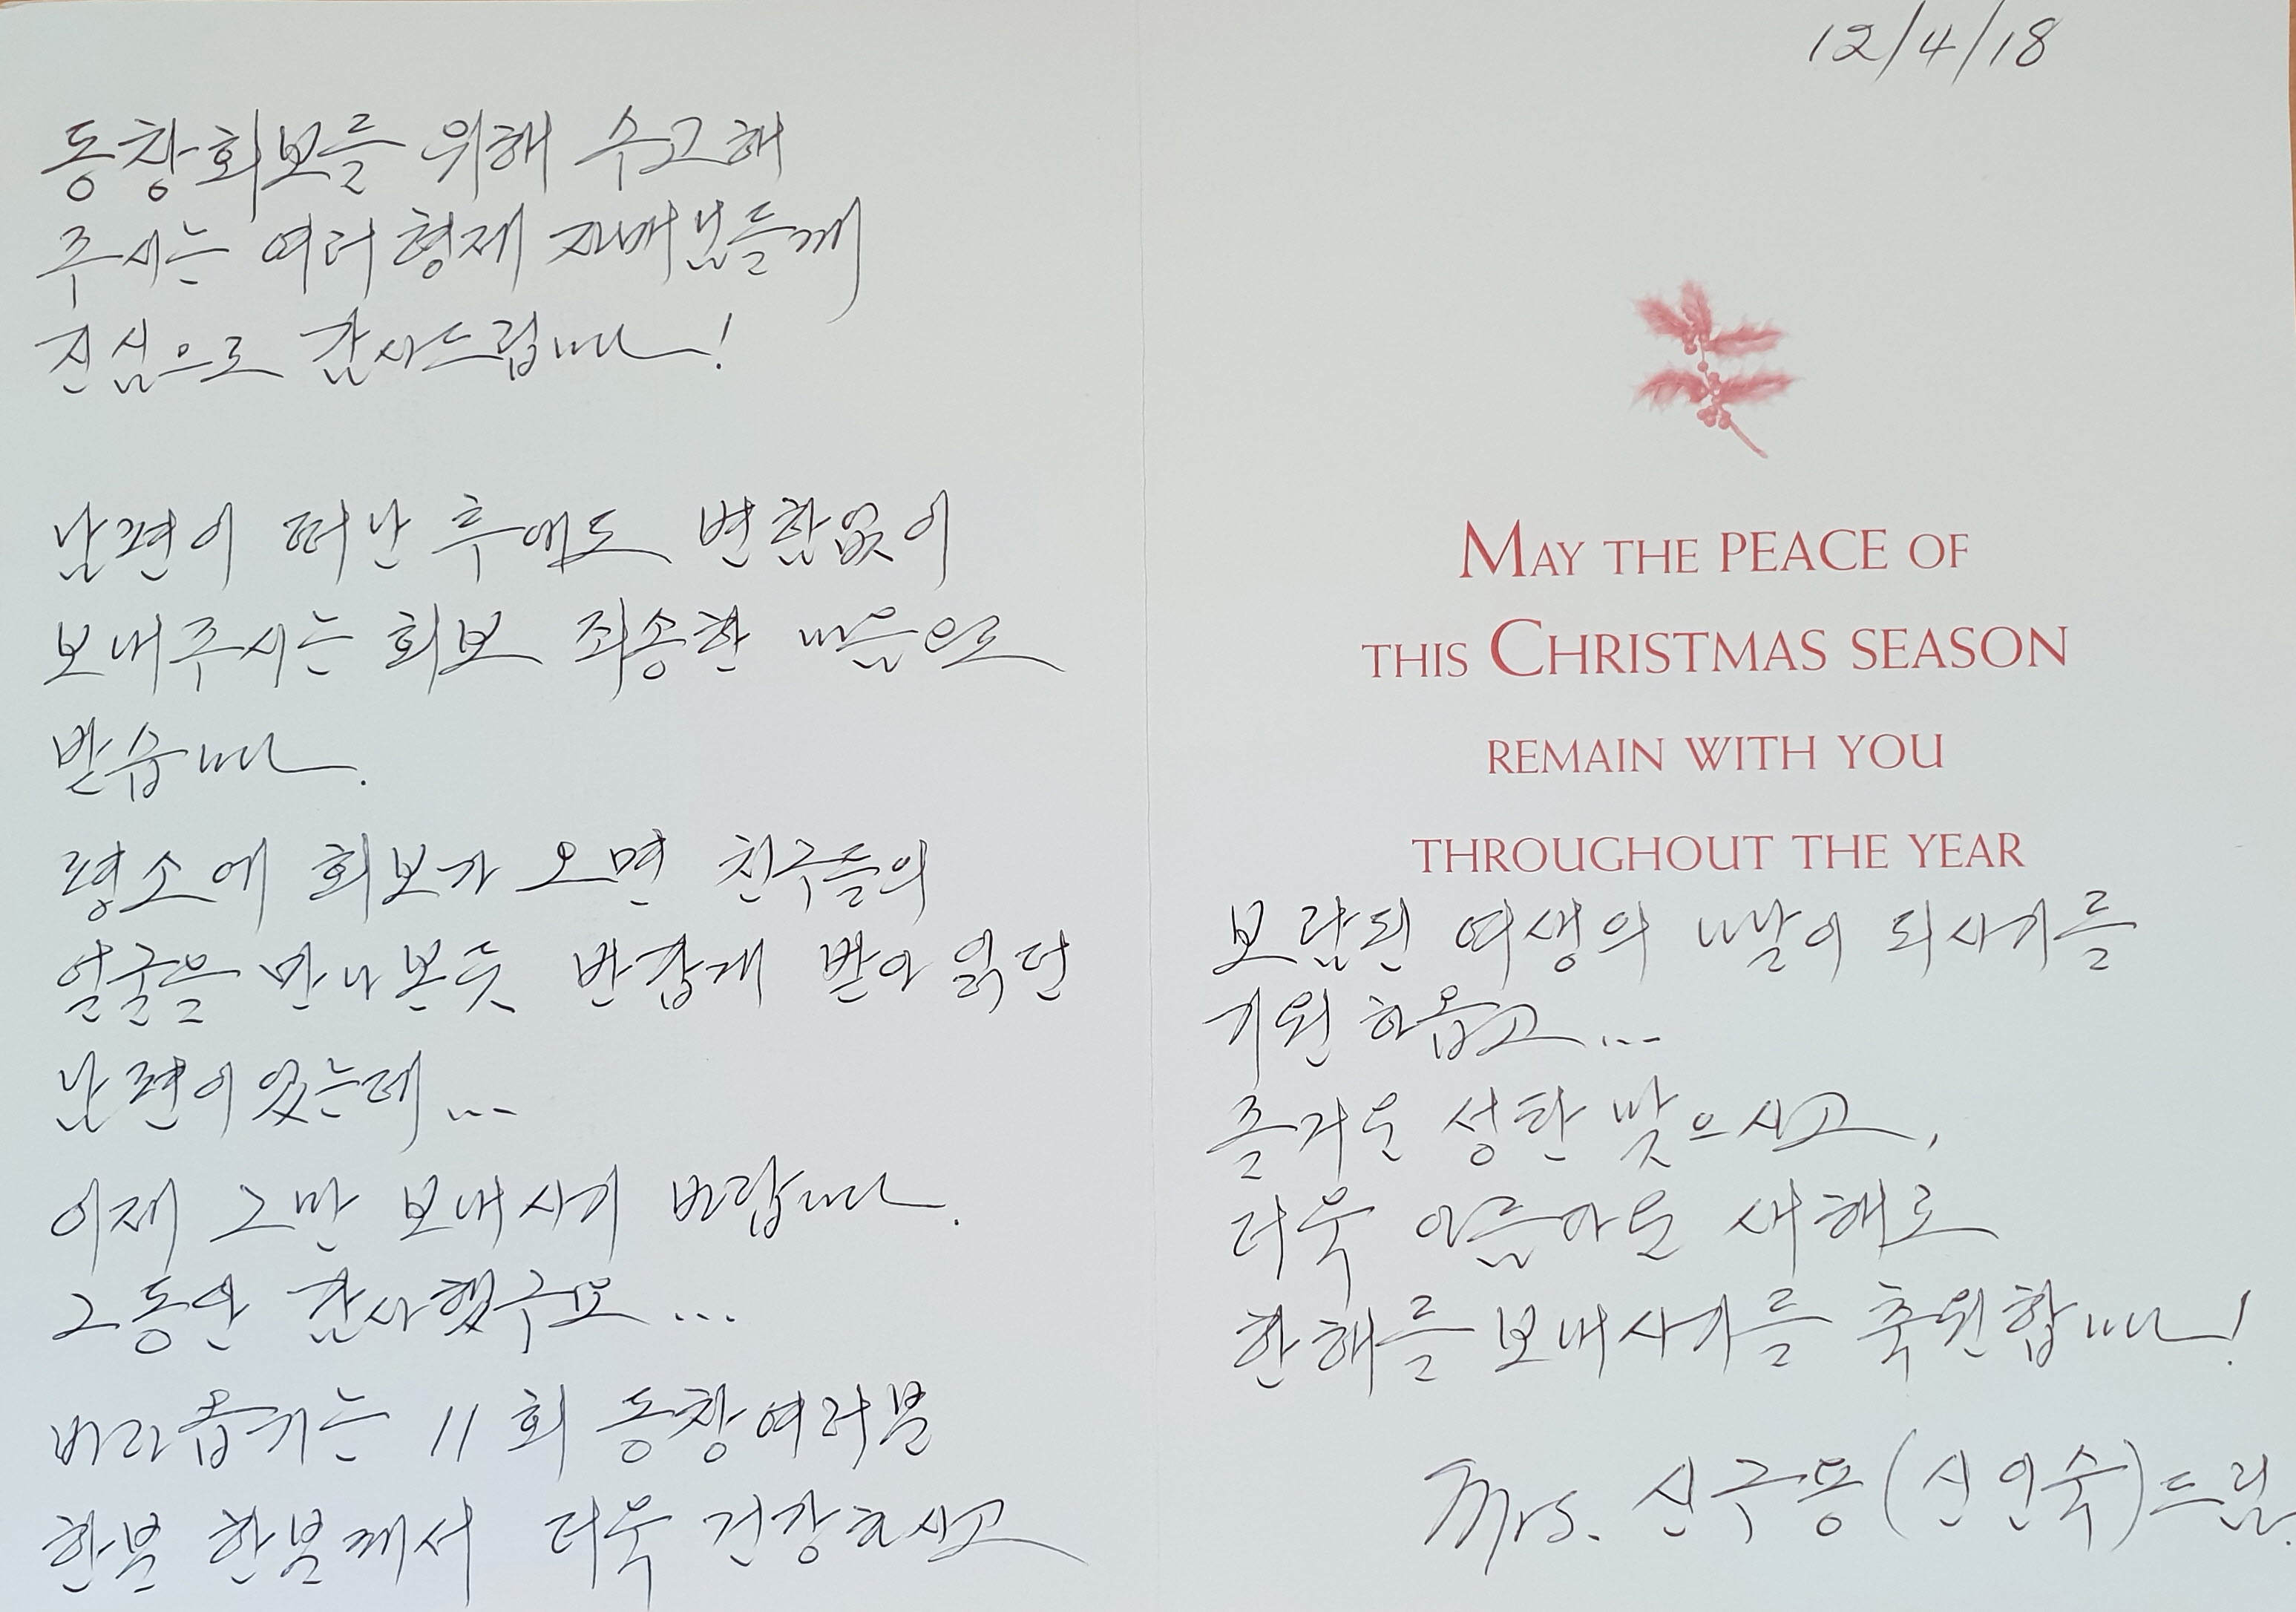 동창회보를 위해 수고해
주시는 여러 형제 자매님들께
진심으로 감사드립니다!
남편이 떠난 후에도 변함없이
보내주시는 회보 죄송한 마음으로
받습니다.
평소에 회보가 오면 친구들의
얼굴을 만나본듯 반갑게 받아 읽던
남편이였는데...
이제 그만 보내시기 바랍니다.
그동안 감사했구요...
바라옵기는 11회 동창여러분
한분 한분께서 더욱 건강하시고
12/4/18
MAY THE PEACE OF
THIS CHRISTMAS SEASON
REMAIN WITH YOU
THROUGHOUT THE YEAR
보람된 여생의 나날이 되시기를
기원하옵고...
즐거운 성탄 맞으시고,
더욱 아름다운 새해로
한해를 보내시기를 축원합니다!
Mrs. 신구용(신인숙)드림.